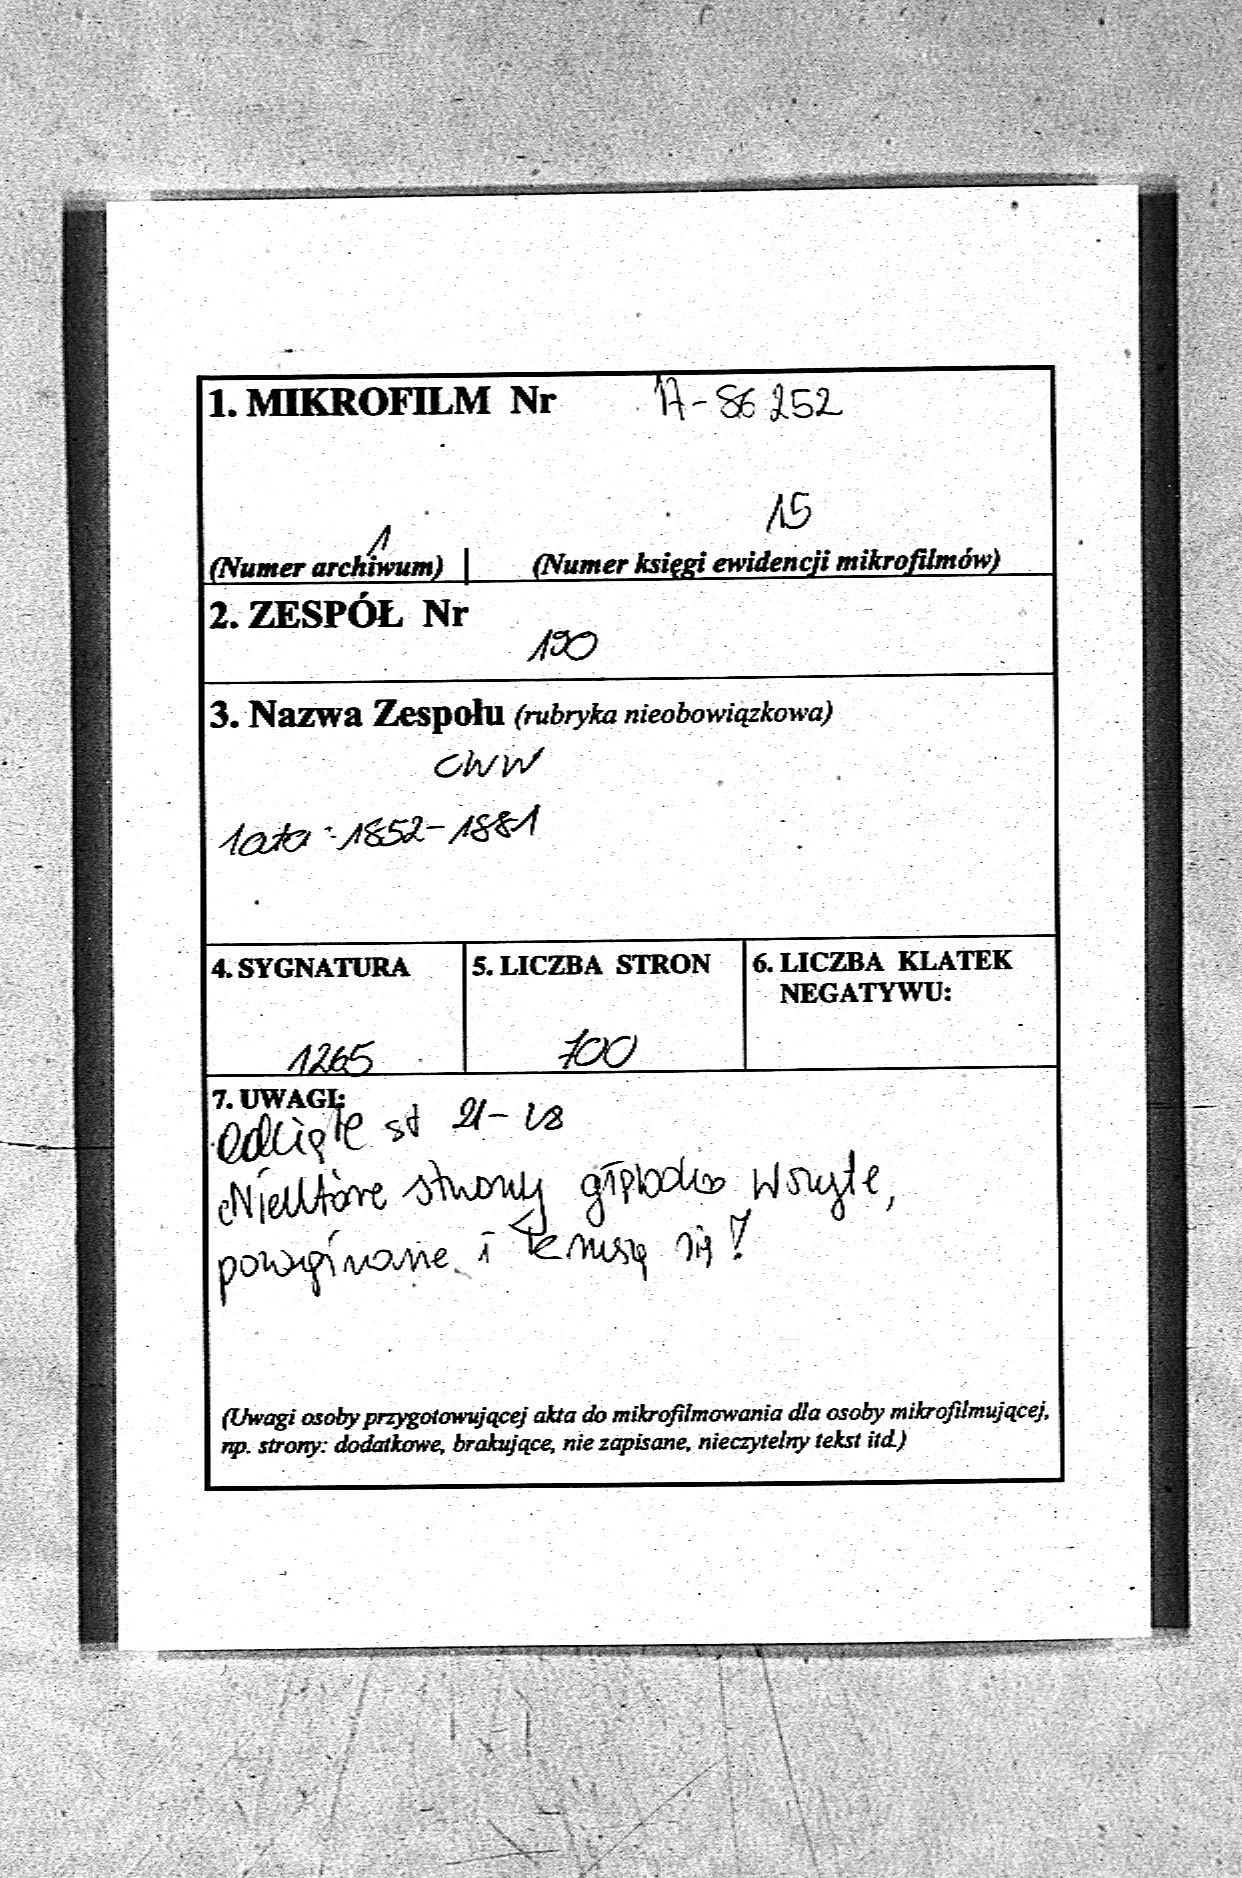 1. MIKROFILM Nr A-86252
1 15
(Numer archiwum) | (Numer księgi ewidencji mikrofilmów)
2. ZESPÓŁ Nr
190
3. Nazwa Zespołu (rubryka nieobowiązkowa)
CWW
lata: 1852-1881
4. SYGNATURA 5. LICZBA STRON 6. LICZBA KLATEK
NEGATYWU:
1265 700
7. UWAGI:
Odcięte st 21-
Niektóre strony głęboko wszyte,
pozaginane i się!
(Uwagi osoby przygotowującej akta do mikrofilmowania dla osoby mikrofilmującej,
np. strony: dodatkowe, brakujące, nie zapisane, nieczytelny tekst itd.)